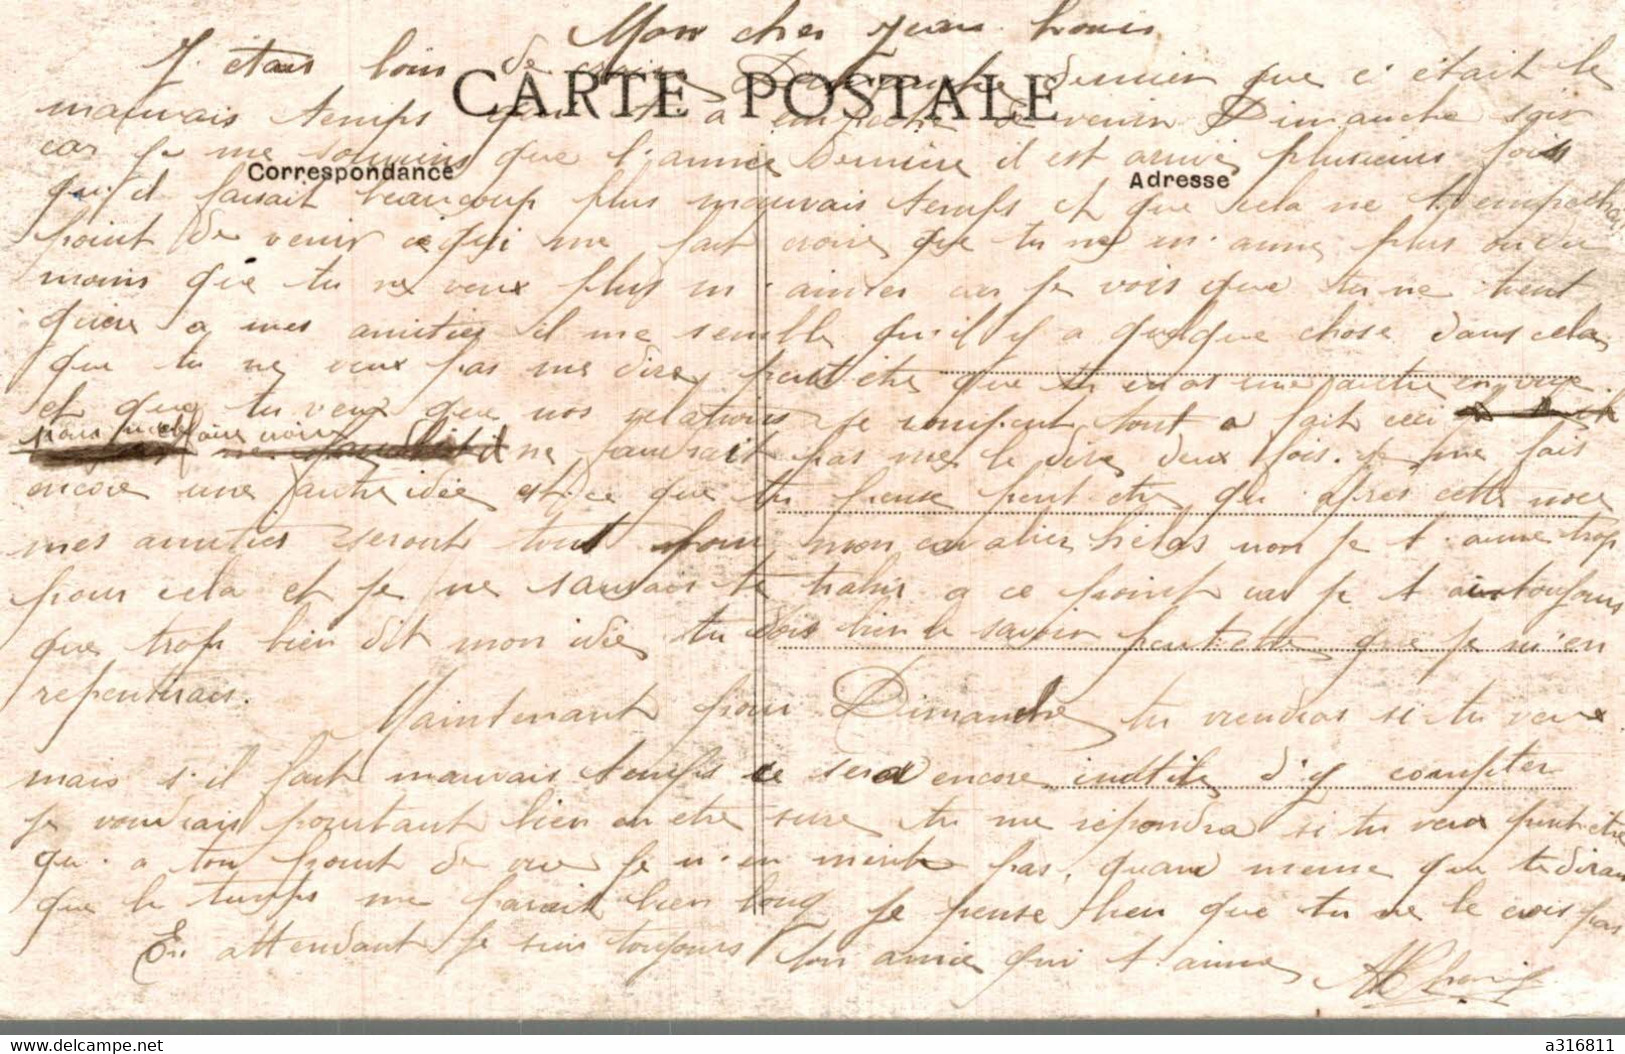 Mon cher Jean Louis
J étais loin de croire Dimanche dernier que c était le
CARTE POSTALE
mauvais temps qui t a empeché de venir Dimanche soir
car je me souviens que l'année dernière il est arrivé plusieurs fois
Correspondance
Adresse
qu'il faisait beaucoup plus mauvais temps et que cela ne t empechait
point de venir ce qui me fait croire que tu ne m'aime plus ou du
moins que tu ne veux plus m'aimer car je vois que tu ne tient
guere a mes amitiés il me semble qu'il y a quelque chose dans cela
que tu ne veux pas me dire peut etre que tu en as une autre en vue
et que tu veux que nos relations se rompent tout a fait ceci
pour me faire croire
il ne faudrait pas me le dire deux fois. je me fais
encore une autre idée est-ce que tu pense peut etre qu'apres cette noce
mes amities seront tout pour mon cavalier hélas non je t'aime trop
pour cela et je ne saurais te trahir a ce point car je t aime toujours
que trop bien dit mon idée tu dois bien le savoir peut-etre que je m'en
repentirais.
Maintenant pour Dimanche tu viendras si tu veux
mais s'il fait mauvais temps ce sera encore inutile d'y compter
je voudrais pourtant bien en etre sure tu me repondra si tu veux peut etre
qu'a ton point de vue je n'en merite pas, quand meme que te dirais
que le temps me parait bien long je pense bien que tu ne le crois pas
En attendant je suis toujours ton amie qui t'aime
Delcampe.net
a316811